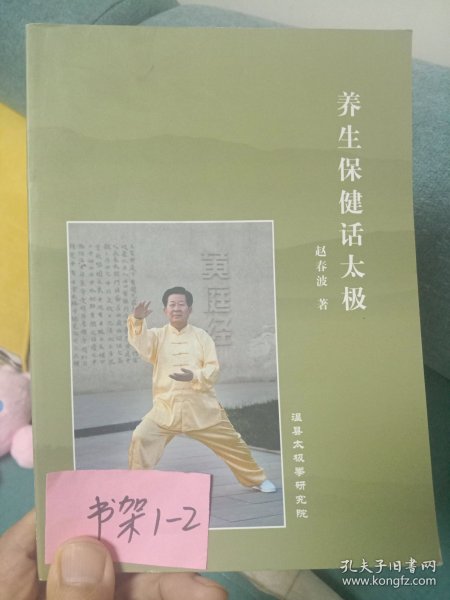 养生保健话太极
赵春波 著
黄庭经
温县太极拳研究院
书架1-2
孔夫子旧书网
www.kongfz.com